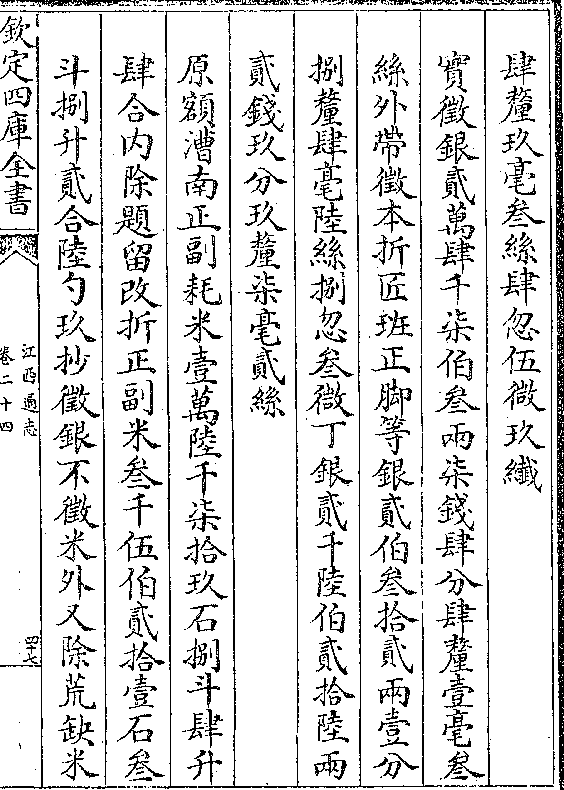 肆釐玖毫叁絲肆忽伍微玖纖
實徵銀貳萬肆千柒伯叁兩柒錢肆分肆釐壹毫叁
絲外帶徵本折匠班正脚等銀貳伯叁拾貳兩壹分
捌釐肆毫陸絲捌忽叁微丁銀貳千陸伯貳拾陸兩
貳錢玖分玖釐柒毫貳絲
原額漕南正副耗米壹萬陸千柒拾玖石捌斗肆升
肆合内除題留改折正副米叁千伍伯貳拾壹石叁
斗捌升貳合陸勺玖抄徵銀不徵米外又除荒缺米
欽定四庫全書
江西通志
卷二十四
四十七